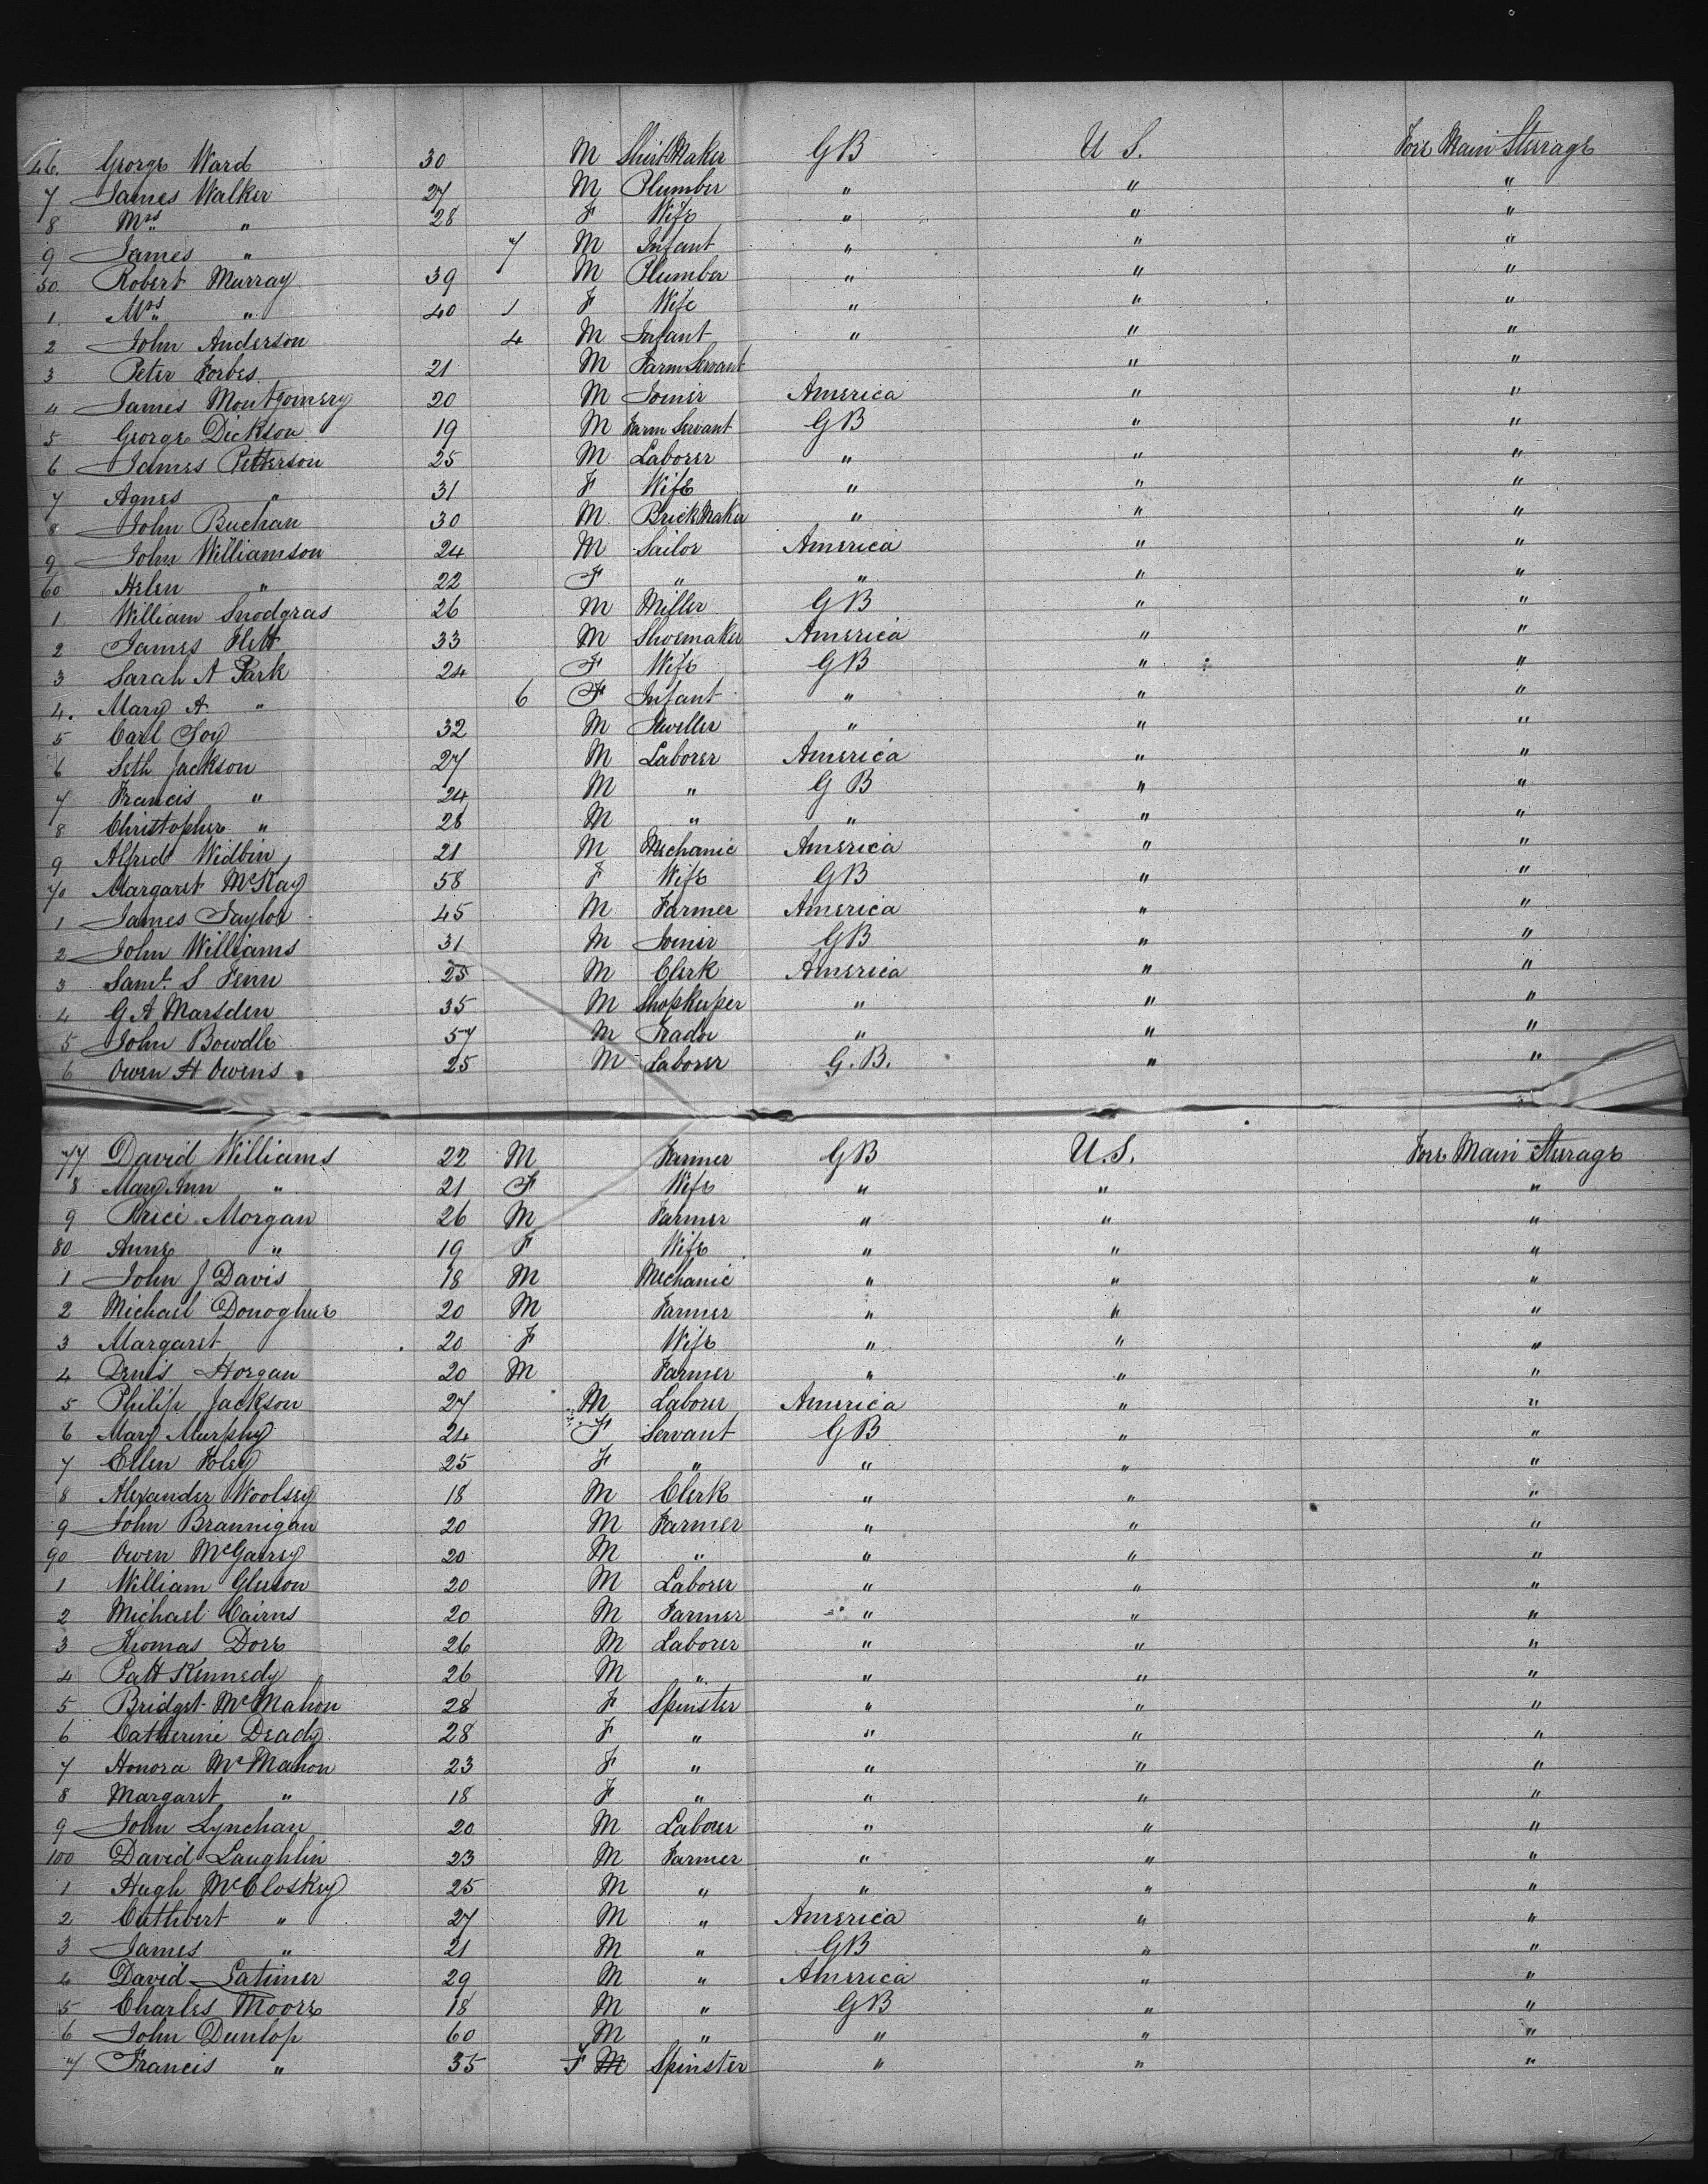 46. George Ward 30 M Shirt Maker GB U S. Fore Main Sterrage
7 James Walker 27 M Plumber " " "
8 Mrs " 28 F Wife " " "
9 James " 7 M Infant " " "
50 Robert Murray 39 M Plumber " " "
1. Mrs " 40 1 F Wife " " "
2 John Anderson 4 M Infant " " "
3 Peter Forbes 21 M Farm Servant " "
4 James Montgomery 20 M Joiner America " "
5 George Dickson 19 M Farm Servant GB " "
6 James Petterson 25 M Laborer " " "
7 Agnes " 31 F Wife " " "
8 John Buchan 30 M Brick Maker " " "
9 John Williamson 24 M Sailor America " "
60 Helen " 22 F " " " "
1 William Snodgras 26 M Miller GB " "
2 James Flett 33 M Shoemaker America " "
3 Sarah A Park 24 F Wife GB " "
4. Mary A " 6 F Infant " " "
5 Carl Joy 32 M Jweller " " "
6 Seth Jackson 27 M Laborer America " "
7 Francis " 24 M " G B " "
8 Christopher " 28 M " " " "
9 Alfred Widbin 21 M Mechanic America " "
70 Margaret McKay 58 F Wife GB " "
1 James Taylor 45 M Farmer America " "
2 John Williams 31 M Joiner GB " "
3 Saml S Fenn 25 M Clerk America " "
4 G A Marsden 35 M Shopkeeper " " "
5 John Bowdle 57 M Trader " " "
6 Owen H Owens 25 M Laborer G.B. " "
77 David Williams 22 M Farmer GB U.S. Fore Main Sterrage
8 Mary Ann " 21 F Wife " " "
9 Price Morgan 26 M Farmer " " "
80 Anne " 19 F Wife " " "
1 John J Davis 18 M Mechanic " " "
2 Michael Donoghue 20 M Farmer " " "
3 Margaret 20 F Wife " " "
4 Denis Horgan 20 M Farmer " " "
5 Philip Jackson 27 M Laborer America " "
6 Mary Murphy 24 F Servant GB " "
7 Ellen Foley 25 F " " " "
8 Alexander Woolsey 18 M Clerk " " "
9 John Brannigan 20 M Farmer " " "
90 Owen McGarrey 20 M " " " "
1 William Gleeson 20 M Laborer " " "
2 Michael Cairns 20 M Farmer " " "
3 Thomas Dore 26 M Laborer " " "
4 Patt Kennedy 26 M " " " "
5 Bridget McMahon 28 F Spinster " " "
6 Catherine Deady 28 F " " " "
7 Honora McMahon 23 F " " " "
8 Margaret " 18 F " " " "
9 John Lynchan 20 M Labourer " " "
100 David Laughlin 23 M Farmer " " "
1 Hugh McCloskey 25 M " " " "
2 Cuthbert " 27 M " America " "
3 James " 21 M " GB " "
4 David Latimer 29 M " America " "
5 Charles Moore 18 M " GB " "
6 John Dunlop 60 M " " " "
7 Francis " 35 F M Spinster " " "